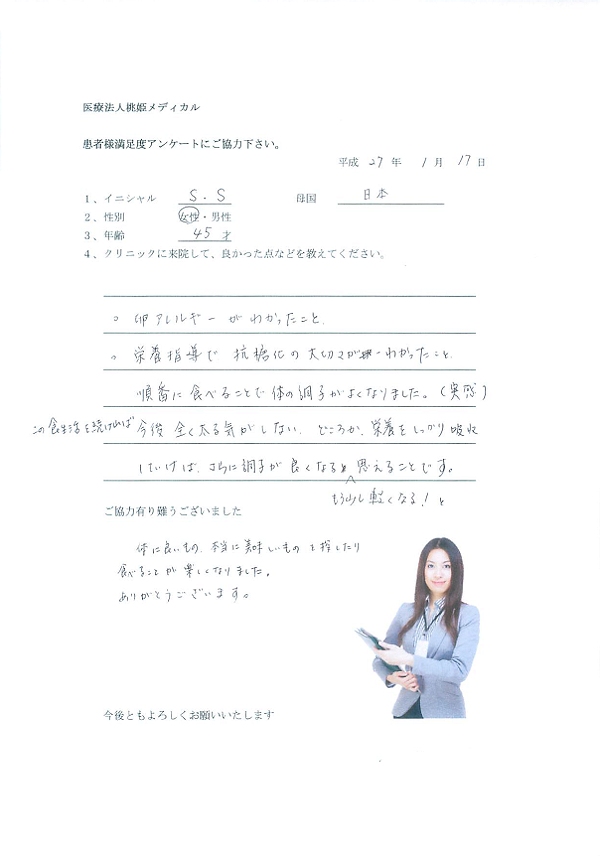 医療法人桃姫メディカル
患者様満足度アンケートにご協力下さい。
平成 27 年 1 月 17 日
1、イニシャル S.S 母国 日本
2、性別 女性・男性
3、年齢 45 才
4、クリニックに来院して、良かった点などを教えてください。
。卵アレルギーがわかったこと、
。栄養指導で 抗糖化の大切さが わかったこと、
順番に食べることで体の調子がよくなりました。(実感)
この食生活を続ければ 今後 全く太る気がしない、どころか、栄養をしっかり吸収
していけば、さらに調子が良くなると思えることです。
もう少し軽くなる!と
ご協力有り難うございました
体に良いもの、本当に美味しいものを探したり
食べることが楽しくなりました。
ありがとうございます。
今後ともよろしくお願いいたします